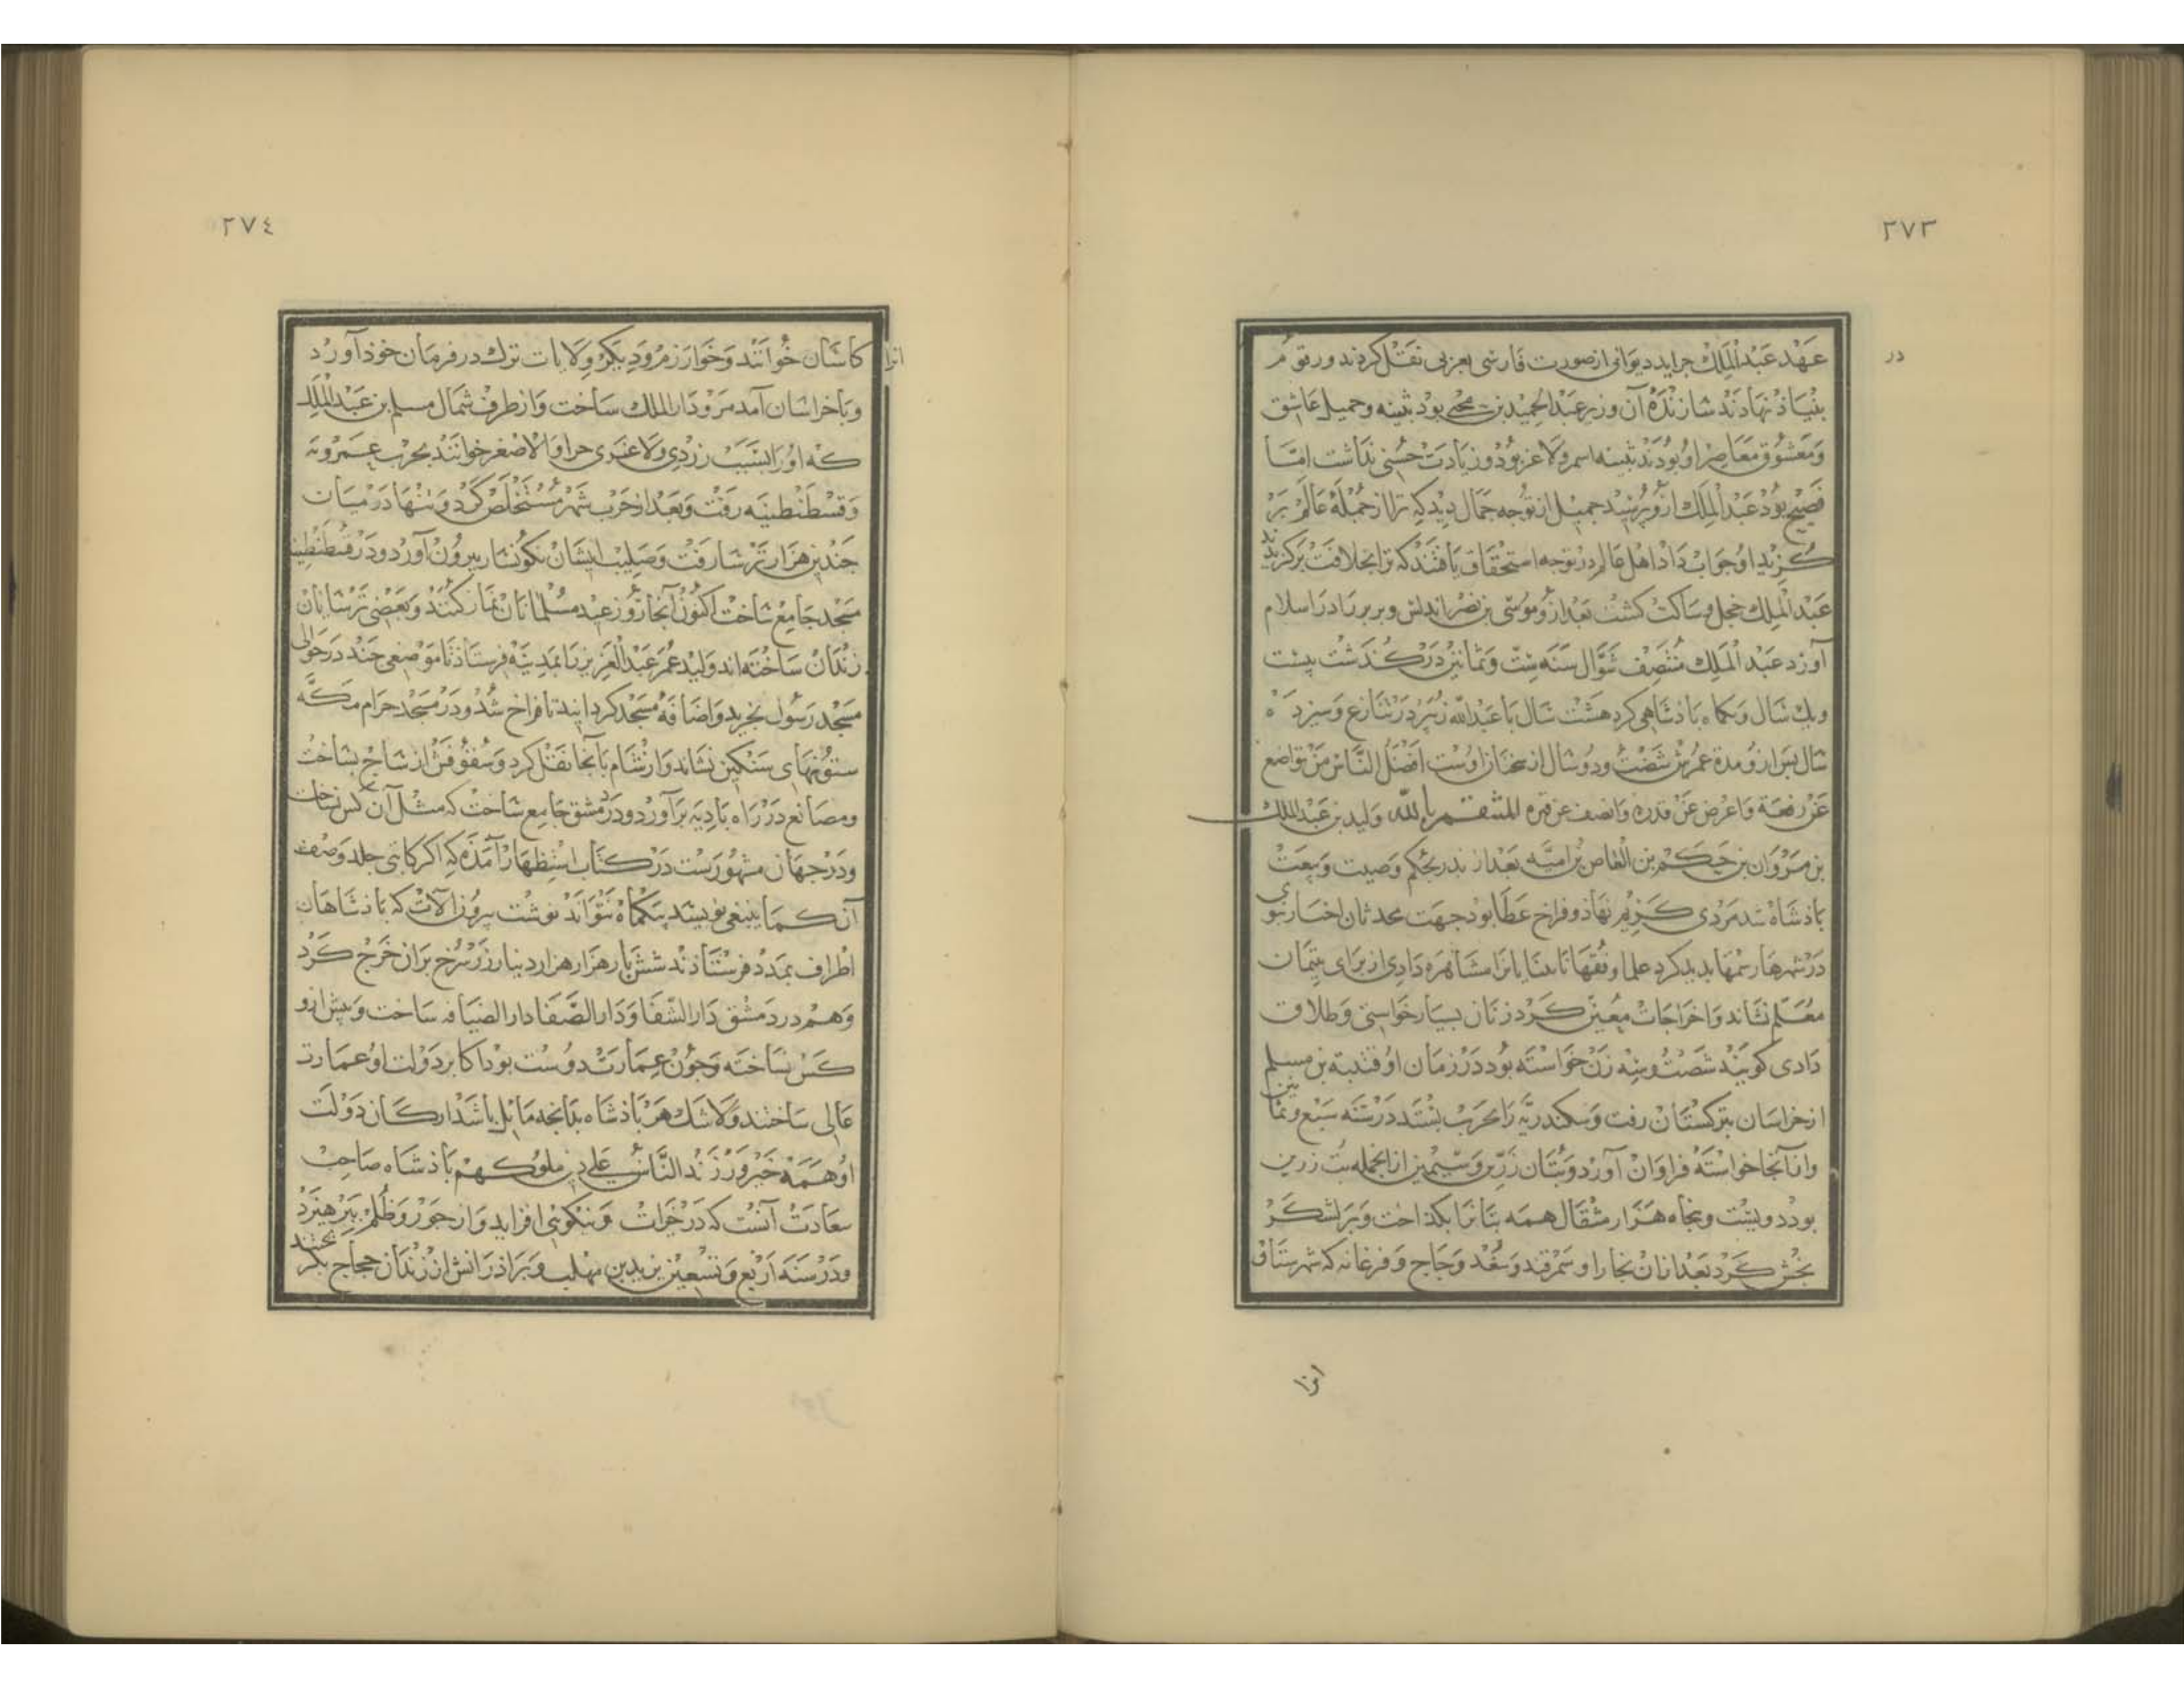 ٢٧٣
در
عهد عبد الملك جرايد ديوانى ازصورت فارسى بعربى نقل كردند ورقوم
بنياذ نهاذند سازنده آن وزير عبد الحميد بن يحيى بود بثينه وجميل عاشق
ومعشوق معاصر او بودند بثينه اسمر ولاغر بود وزيادت حسنى نداشت امّا
فصيح بود عبد الملك ازو پرسيد جميل از توجه جمال ديد كه ترا از جمله عالم بر
كزيد او جواب داد اهل عالم در توجه استحقاق يافتند كه ترا بخلافت بركزيدند
عبد الملك خجل وساكت كشت بعد ازو موسى بن نصر اندلس وبربر را در اسلام
آورد عبد الملك منتصف شوّال سنه ستّ وثمانين دركذشت بيست
ويك سال ويكماه باذشاهى كرد هشت سال با عبد الله زبير در تنازع وسيزده
سال پس ازو مدة عمرش شصت ودو سال از سخنان اوست افضل النّاس من تواضع
عن رفعة واعرض عن قدرة وانصف عن قوه المنتقم بالله وليد بن عبد الملك
بن مروان بن حكم بن العاص بن اميّه بعد از پدر بحكم وصيت وبيعت
باذشاه شد مردى كريم نهاذ وفراخ عطا بود جهت محدثان اخبار نبوى
در شهرها رسمها پديد كرد علما وفقها نابينايانرا مشاهره دادى از براى يتيمان
معلّم نشاند واخراجات معين كرد زنان بسيار خواستى وطلاق
دادى كويند شصت وسه زن خواسته بود در زمان او قتيبة بن مسلم
از خراسان بتركستان رفت وسكندريّه را بحرب بستد در سنه سبع وثمانين
وازآنجا خواسته فراوان آورد وبتان زرّين وسيمين ازانجمله بت زرين
بود دويست وپنجاه هزار مثقال همه بتانرا بكذاخت وبر لشكر
بخش كرد بعد ازان بخارا وسمرقند وسغد وجاج وفرغانه كه شهرستان
انرا
٢٧٤
انرا
كاسان خوانند وخوارزم وديكر ولايات ترك در فرمان خوذ آورد
وباخراسان آمد مرو دار الملك ساخت وازطرف شمال مسلم بن عبد الملك
كه اورا بسبب زردى ولاغرى جراد الاصغر خوانند بحرب عمورية
وقسطنطينيه رفت وبعد از حرب شهر مستخلص كرد وتنها در ميان
جندين هزار ترسا رفت وصليب ايشان نكونسار بيرون آورد ودر قسطنطينيه
مسجد جامع ساخت اكنون آنجا روز عيد مسلمانان نماز كنند وبعضى ترسايان
زندان ساخته اند وليد عمر عبد العزيز را بمدينه فرستاذ تا موضعى جند در حوالى
مسجد رسول بخريد واضافه مسجد كردانيد تا فراخ شد ودر مسجد حرام مكه
ستونهاى سنكين نشاند واز شام بآنجا نقل كرد وسقوفش از ساج بساخت
ومصانع در راه باديه برآورد ودر دمشق جامع ساخت كه مثل آن كس نساخت
ودر جهان مشهورست در كتاب استظهار آمذه كه اكر كاتبى جلد وصف
آن كما ينبغى نويسد بيكماه نتواند نوشت بيرون آلات كه باذشاهان
اطراف بمدد فرستاذند شش بار هزار هزار دينار زر سرخ بران خرج كرد
وهم در دمشق دار الشفا ودار الصّفا دار الضيافه ساخت وپيش ازو
كس نساخته وجون عمارت دوست بود اكابر دولت او عمارت
عالى ساختند ولاشك هر باذشاه بدانجه مايل باشد اركان دولت
او همه خير ورزند النّاس على دين ملوكهم باذشاه صاحب
سعادت آنست كه در خيرات ونيكوئى افزايد واز جور وظلم بپرهيزد
ودر سنه اربع وتسعين يزيد بن مهلب وبراذرانش از زندان حجاج بكريختند